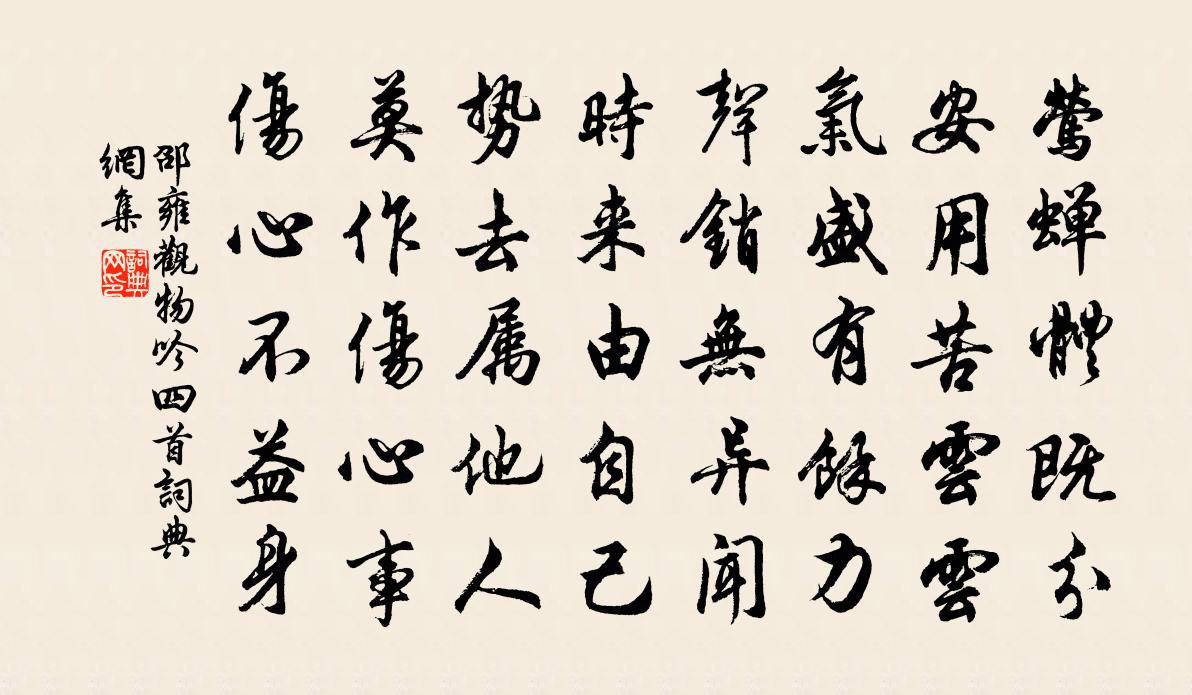 鶯蟬體既分
安用苦雲雲
氣盛有餘力
聲銷無异聞
時来由自己
勢去属他人
莫作傷心事
傷心不益身
邵雍觀物吟四首詞典
網集
詞典网印